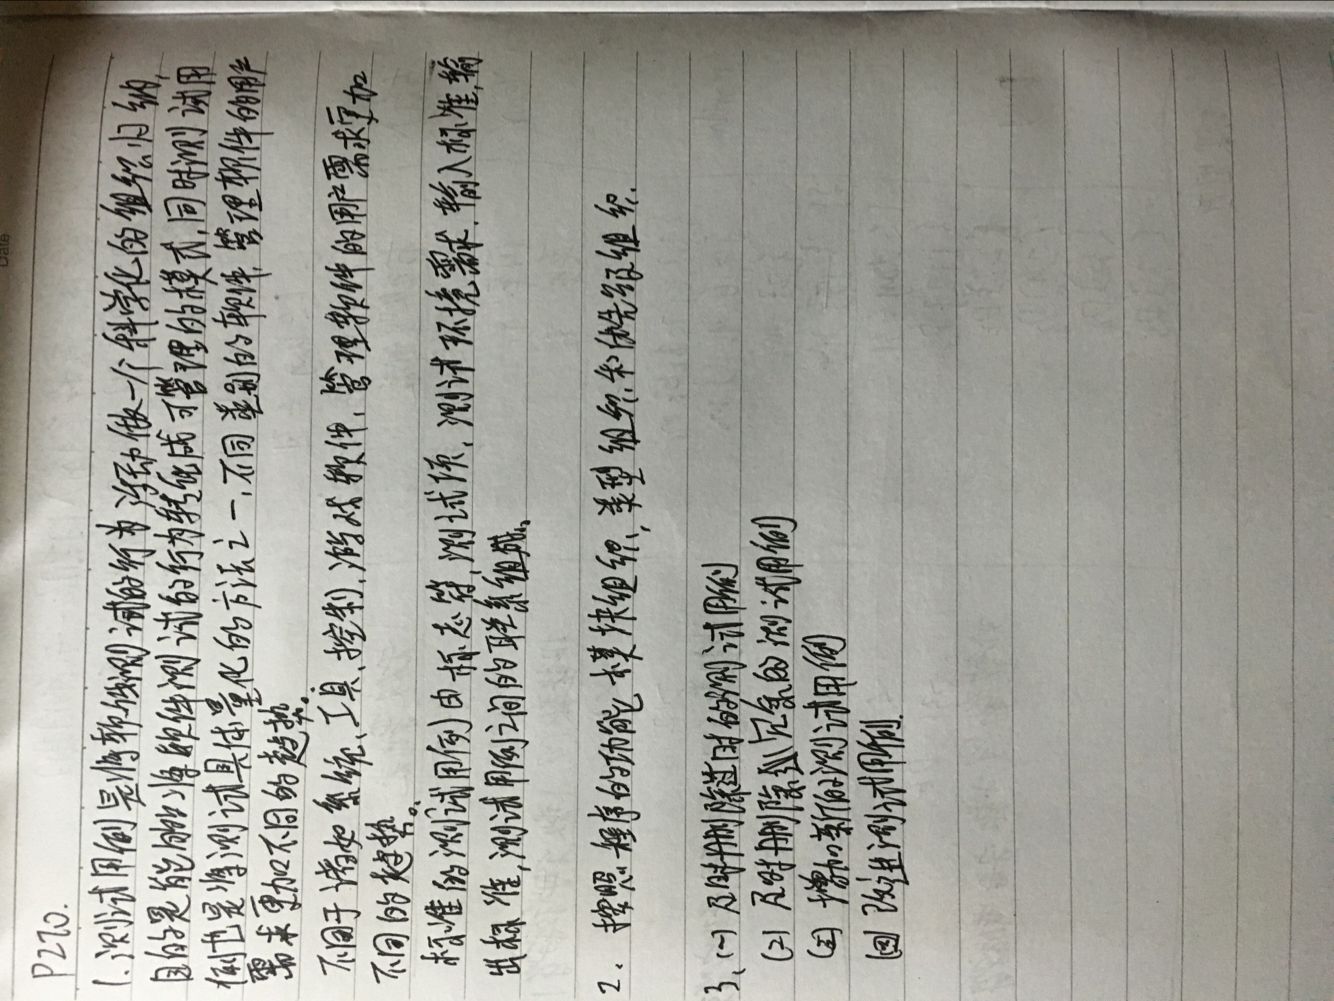 Date
P220.
1、测试用例是将软件测试的行为活动做一个科学化的组织归纳,
目的是能够将软件测试的行为转化成可管理的模式,同时测试用
例也是将测试具体量化的方法之一,不同类别的软件,管理软件的用户
需求更加不同的趋势。
不同于诸如系统、工具、控制、游戏软件,管理软件的用户需求更加
不同的趋势。
标准的测试用例由标志符,测试项,测试环境需求,输入标准,输
出标准,测试用例之间的联系组成。
2、按照程序的功能模块组织、类型组织和优先级组织.
3、(一) 及时删除过时的测试用例
(二) 及时删除冗余的测试用例
(三) 增加新的测试用例
(四) 改进测试用例.